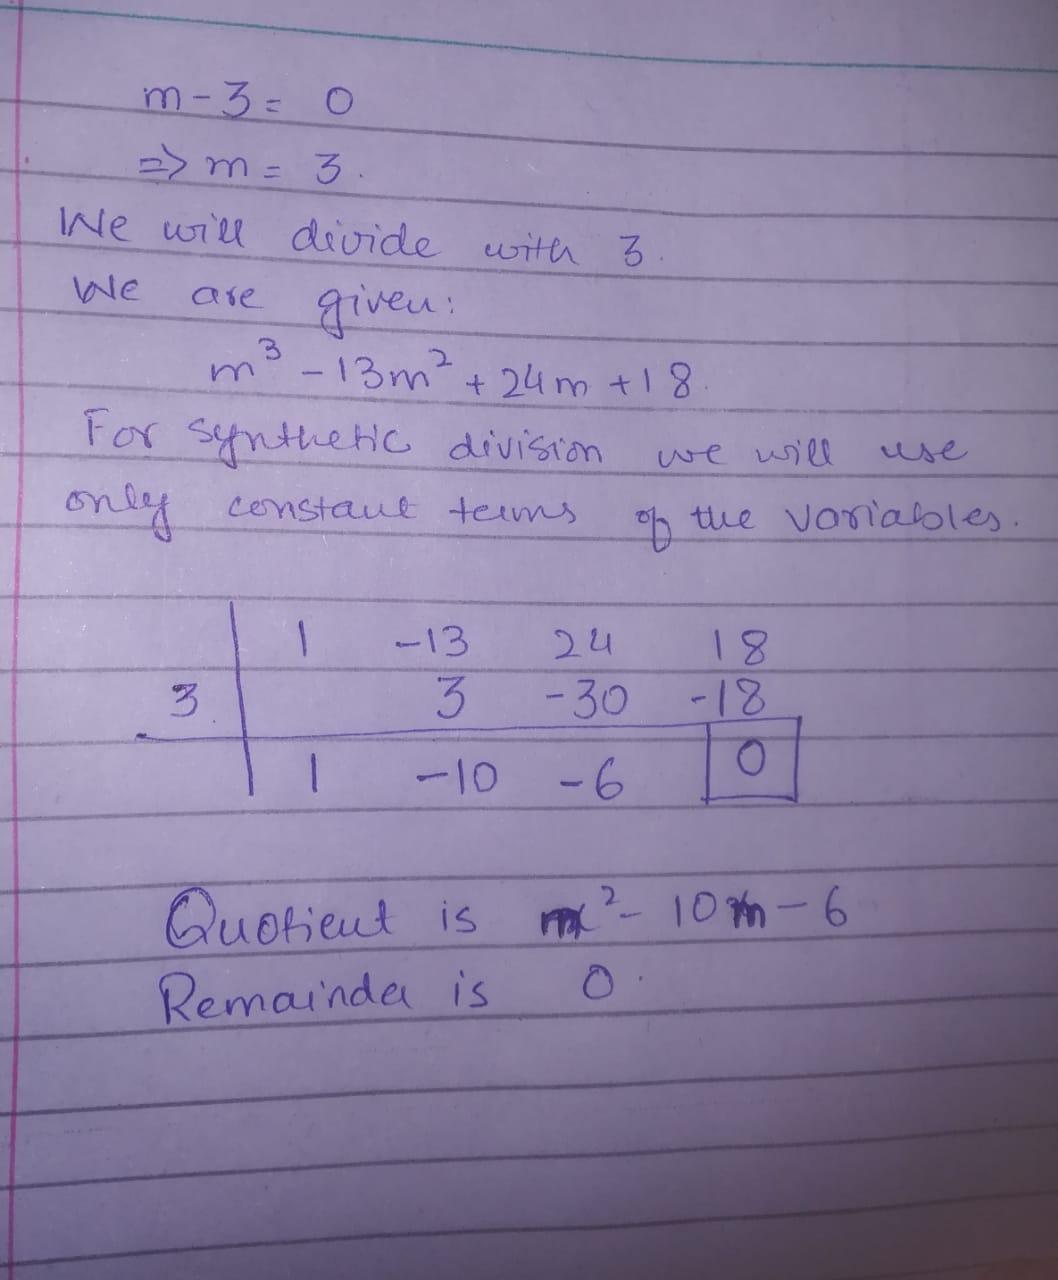 m - 3 = 0
=> m = 3.
We will divide with 3.
We are given:
m³ - 13m² + 24m + 18.
For synthetic division we will use
only constant terms of the variables.
1 -13 24 18
3. 3 -30 -18
1 -10 -6 0
Quotient is m² - 10m - 6
Remainder is 0.